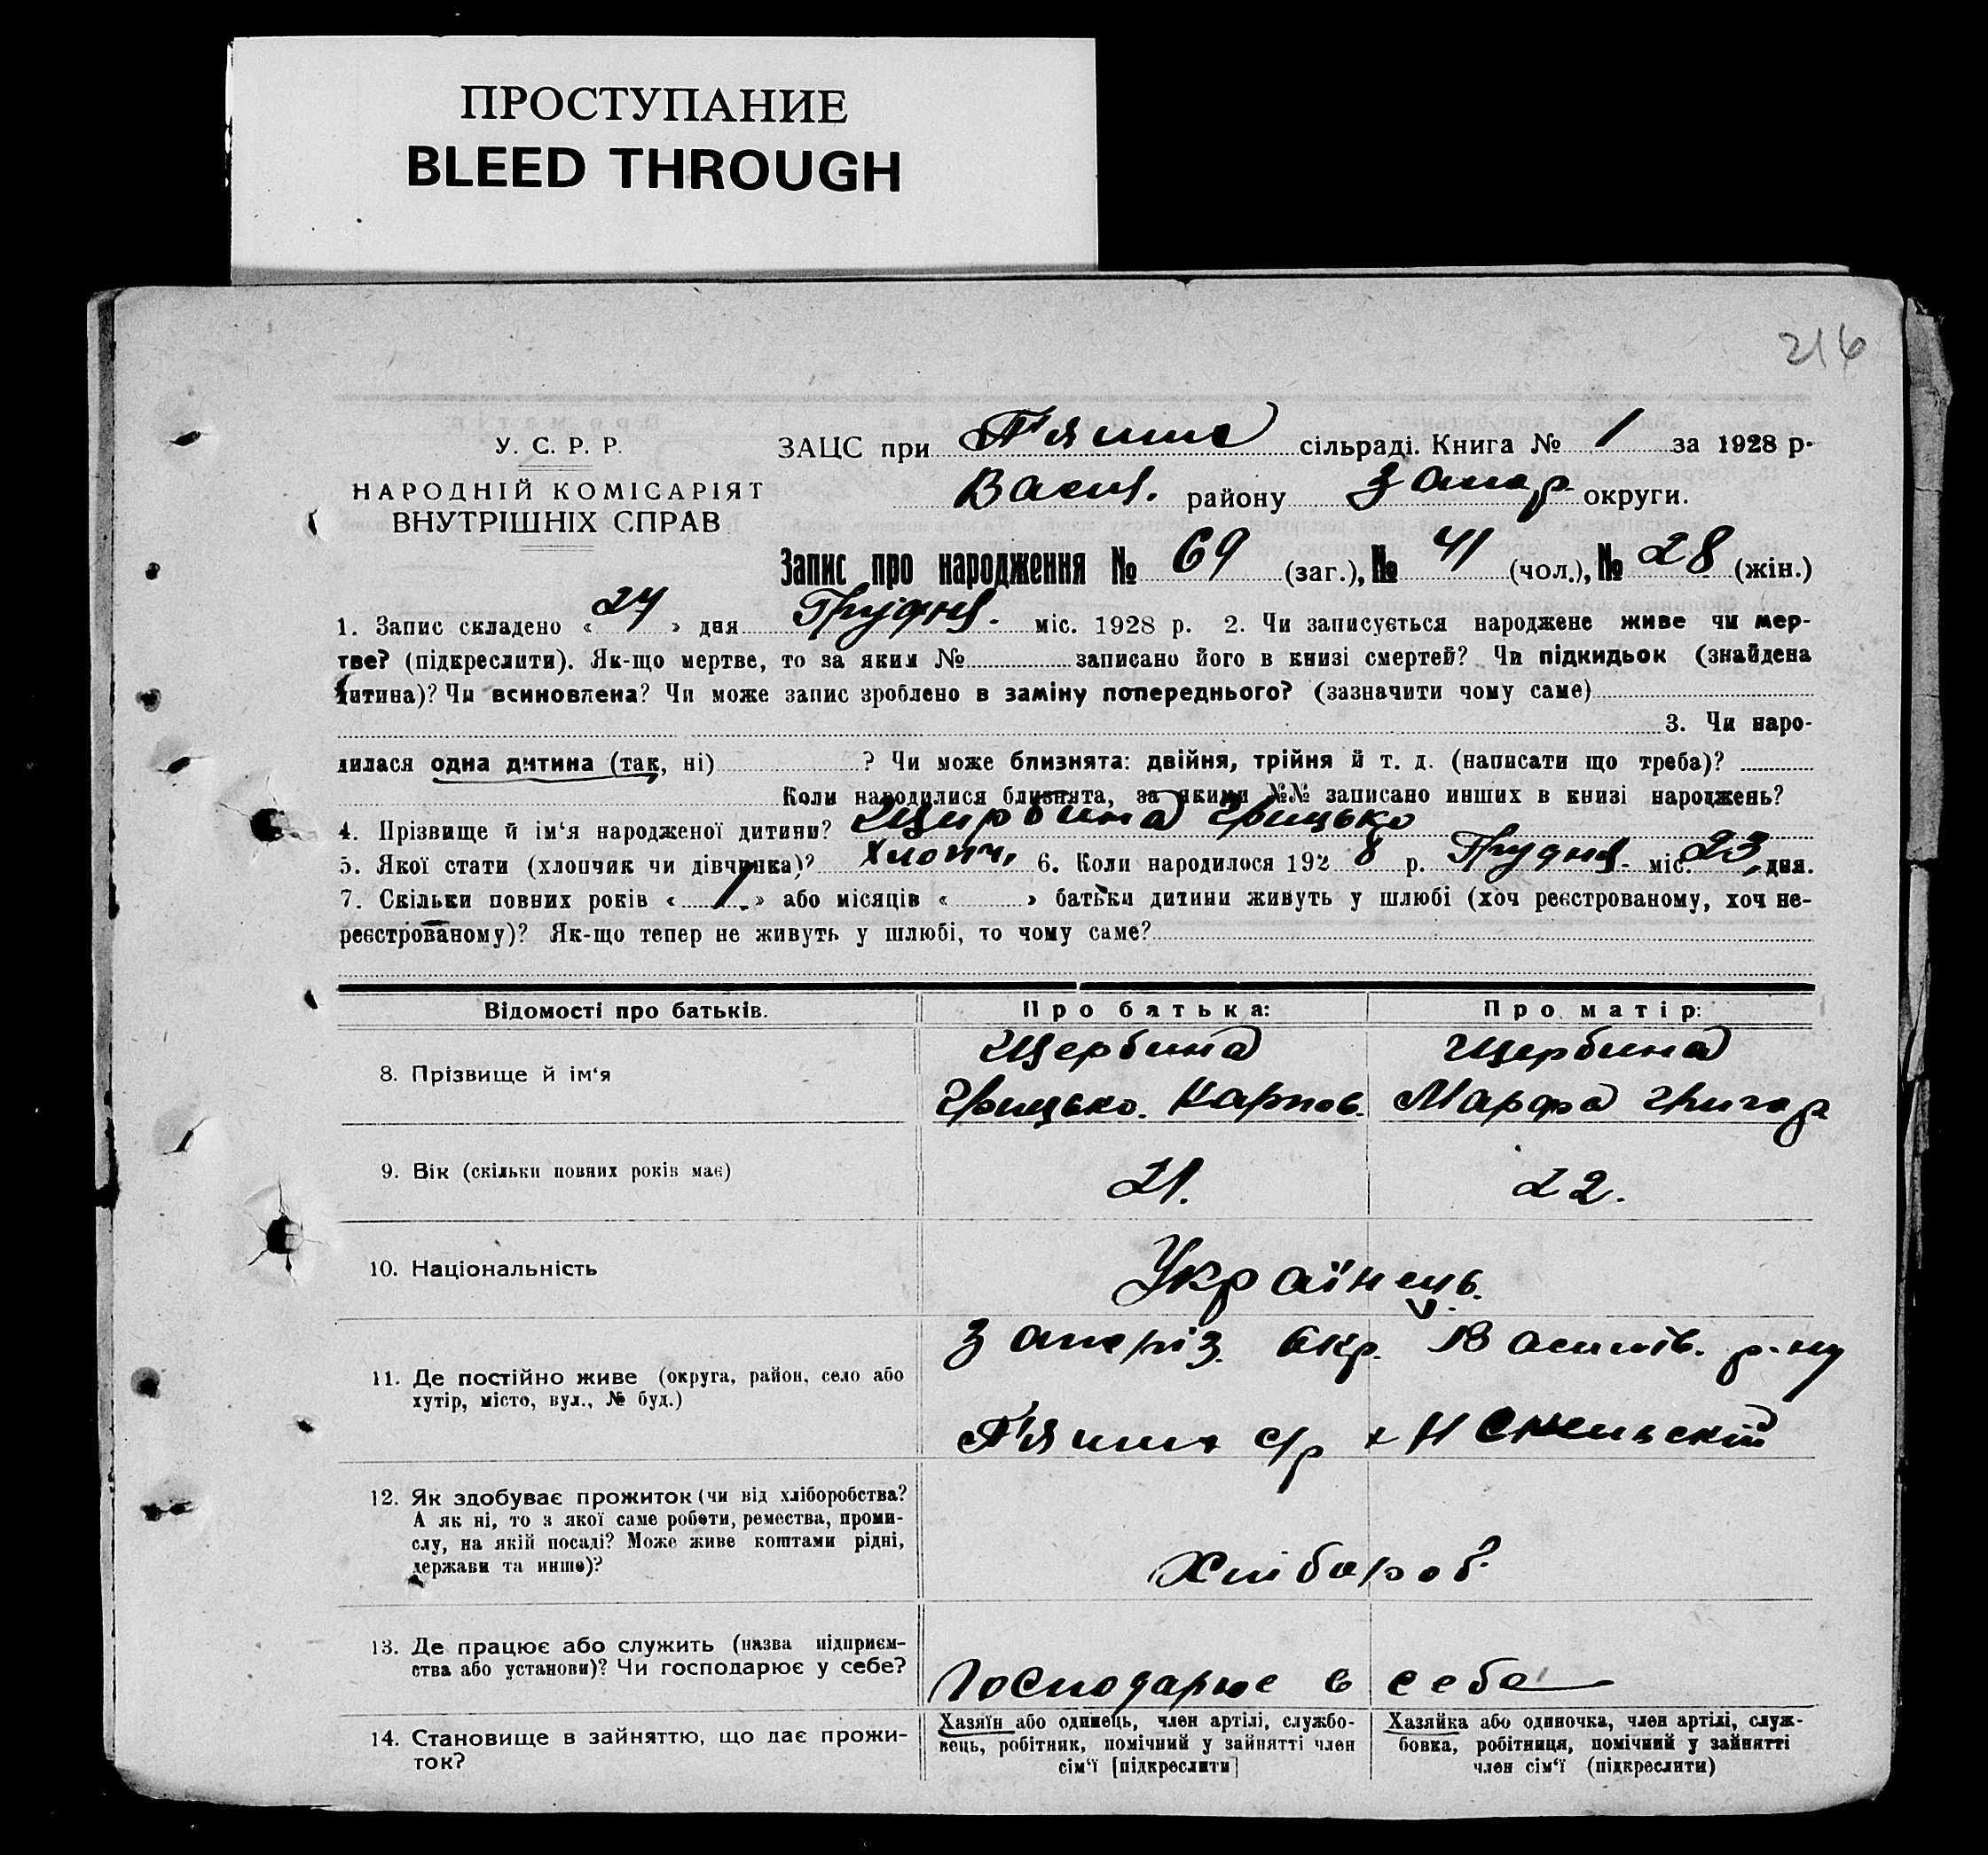 ПРОСТУПАНИЕ
BLEED THROUGH
216
У. С. Р. Р.
НАРОДНІЙ КОМІСАРІЯТ
ВНУТРІШНІХ СПРАВ
ЗАЦС при сільраді. Книга № 1 за 1928 р.
Васил. району Запор. округи.
Запис про народження № 69 (заг.), № 41 (чол.), № 28 (жін.)
1. Запис складено « 27 » дня Грудня. міс. 1928 р. 2. Чи записується народжене живе чи мер-
тве? (підкреслити). Як-що мертве, то за яким № записано його в книзі смертей? Чи підкидьок (знайдена
дитина)? Чи всиновлена? Чи може запис зроблено в заміну попереднього? (зазначити чому саме)
3. Чи наро-
дилася одна дитина (так, ні) ? Чи може близнята: двійня, трійня й т. д. (написати що треба)?
Коли народилися близнята, за якими №№ записано инших в книзі народжень?
4. Прізвище й ім‘я народженої дитини? Щирбина Грицько
5. Якої стати (хлопчик чи дівчинка)? Хлопч. 6. Коли народилося 1928 р. Грудня міс. 23 дня.
7. Скільки повних років « 1 » або місяців « » батьки дитини живуть у шлюбі (хоч реєстрованому, хоч не-
реєстрованому)? Як-що тепер не живуть у шлюбі, то чому саме?
Відомості про батьків. Про батька: Про матір:
8. Прізвище й ім‘я
Щербина Щербина
Грицько. Карпов. Марфа Григор
9. Вік (скільки повних років має) 21. 22.
10. Національність Українець.
11. Де постійно живе (округа, район, село або
хутір, місто, вул., № буд.)
Запоріз. Окр. Василів. р-ну
с/р х
12. Як здобуває прожиток (чи від хліборобства?
А як ні, то з якої саме роботи, ремества, проми-
слу, на якій посаді? Може живе коштами рідні,
держави та инше)?
Хлібороб.
13. Де працює або служить (назва підприєм-
ства або установи)? Чи господарює у себе?
Господарює в себе
14. Становище в зайняттю, що дає прожи-
ток?
Хазяїн або одинець, член артілі, службо-
вець, робітник, помічний у зайнятті член
сім‘ї [підкреслити]
Хазяйка або одиночка, член артілі, служ-
бовка, робітниця, помічний у зайнятті
член сім‘ї (підкреслити)